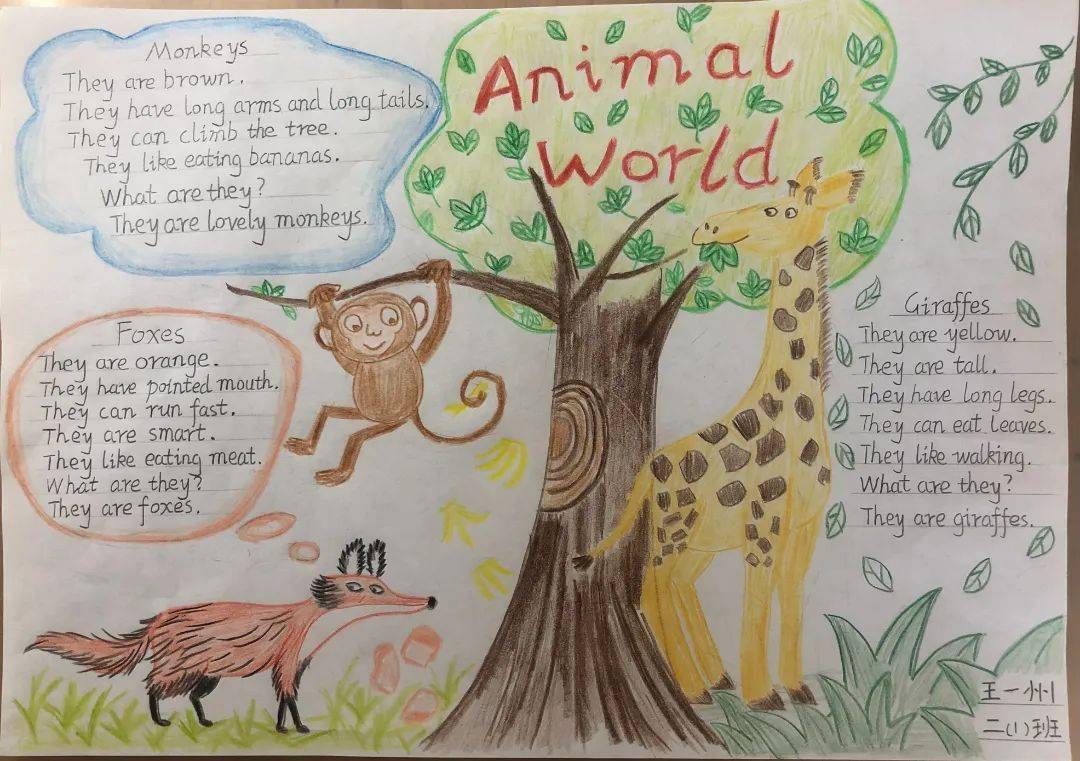 Animal
World
Monkeys
They are brown.
They have long arms and long tails.
They can climb the tree.
They like eating bananas.
What are they?
They are lovely monkeys.
Foxes
They are orange.
They have pointed mouth.
They can run fast.
They are smart.
They like eating meat.
What are they?
They are foxes.
Giraffes
They are yellow.
They are tall.
They have long legs.
They can eat leaves.
They like walking.
What are they?
They are giraffes.
王一州
二(1)班